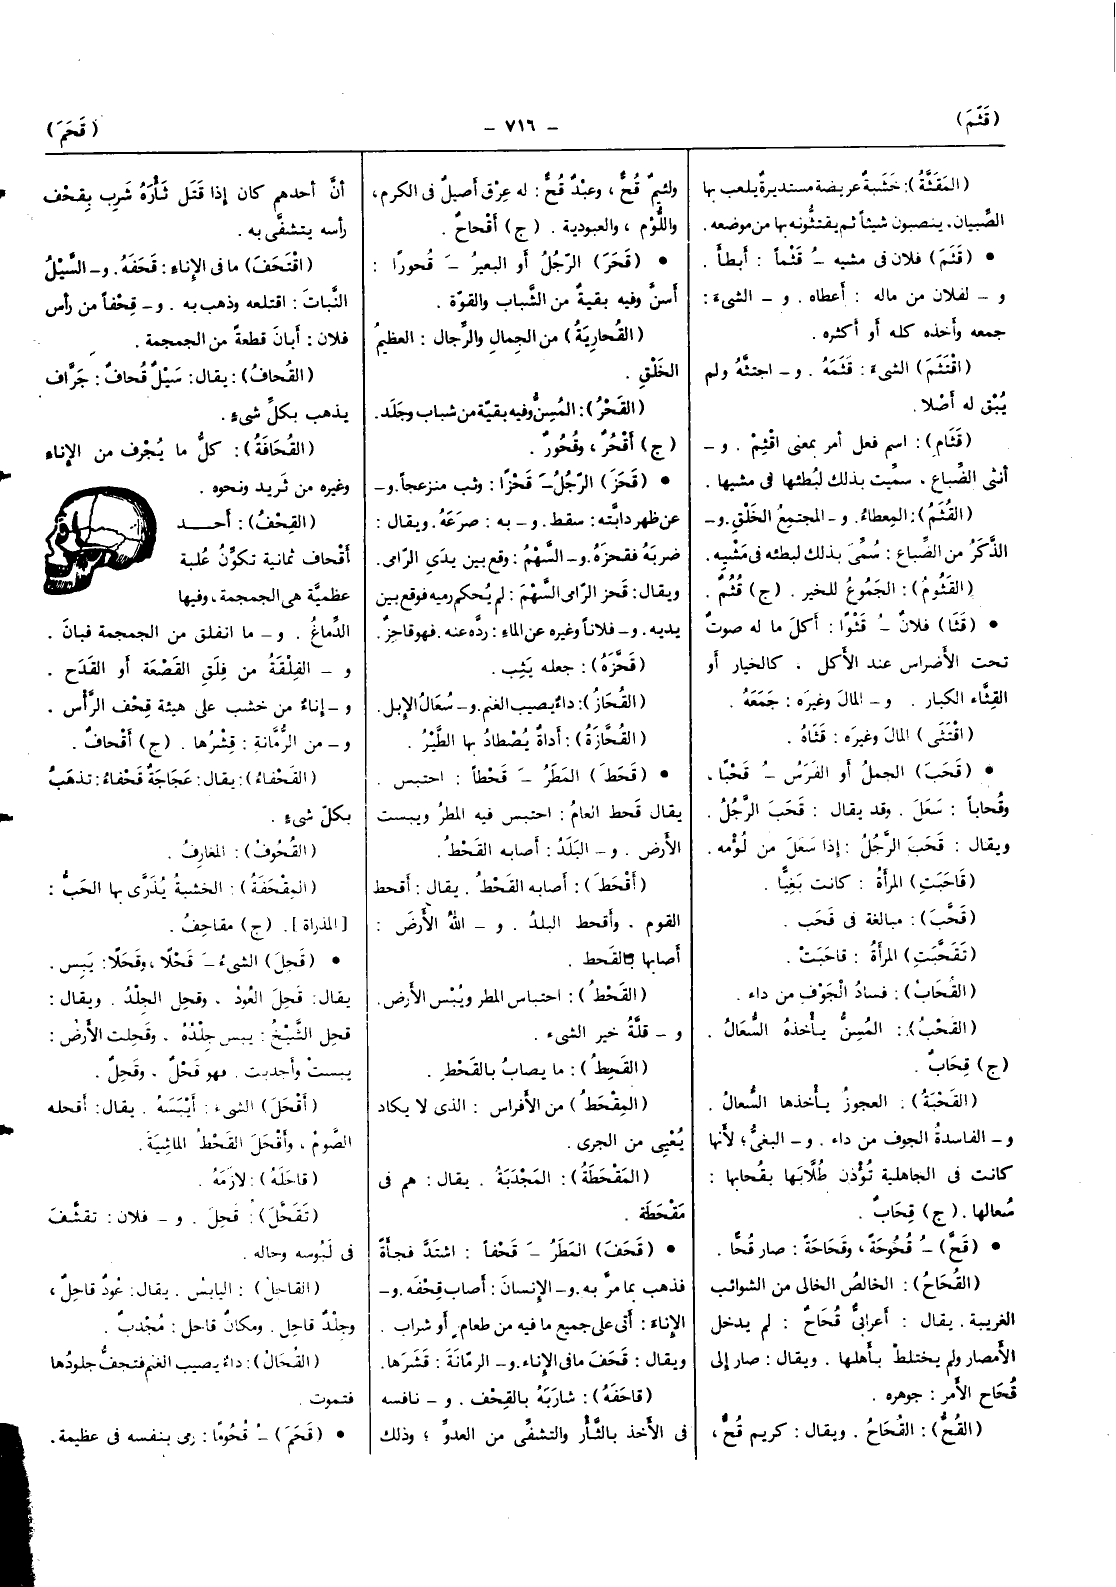 (قَثَمَ)
- ٧١٦ -
(قَحَمَ)
(المَقَثَّةُ): خَشَبةٌ عريضة مستديرةٌ يلعب بها
الصِّبيان، ينصبون شيئاً ثم يقتثُّونه بها من موضعه .
• (قَثَمَ) فلان فى مشيه ـُ قَثْماً : أبطأ .
و ـ لفلان من ماله : أعطاه . و ـ الشىءَ :
جمعه وأخذه كله أو أكثره .
(اقْتَثَمَ) الشىءَ : قَثَمَهُ . و ـ اجتثَّهُ ولم
يُبْق له أصْلا.
(قَثَامِ) : اسم فعل أمر بمعنى اقْثِمْ . و ـ
أنثى الضِّباع ، سمِّيت بذلك لبُطئها فى مشيها .
(القُثَمُ): المِعطاءُ. و ـ المجتمِعُ الخَلْقِ. و ـ
الذَّكَرُ من الضِّباع : سُمِّىَ بذلك لبطئه فى مَشْيِه .
(القَثُومُ) : الجَمُوعُ للخير . (ج) قُثُمٌ .
• (قَثَا) فلانٌ ـُ قَثْوًا : أكلَ ما له صوتٌ
تحت الأضراس عند الأكل . كالخيار أو
القِثَّاء الكبار . و ـ المالَ وغيرَه : جَمَعَهُ .
(اقْتَثَى) المالَ وغيرَه : قَثَاهُ .
• (قَحَبَ) الجملُ أو الفَرَسُ ـُ قَحْبًا ،
وقُحاباً : سَعَلَ . وقد يقال : قَحَبَ الرَّجُلُ .
ويقال : قَحَبَ الرَّجُلُ : إذا سَعَلَ من لُؤْمه .
(قَاحَبَتِ) المرأةُ : كانت بَغِيًّا .
(قَحَّبَ) : مبالغة فى قَحَب .
(تَقَحَّبَتِ) المرأةُ : قاحَبَتْ .
(القُحَابُ) : فسادُ الْجَوْف من داء .
(القَحْبُ) : المُسِنُّ يـأخذهُ السُّعالُ .
(ج) قِحَابٌ .
(القَحْبَةُ) : العجوزُ يـأخذها السُّعالُ .
و ـ الفاسدةُ الجوف من داء . و ـ البغىُّ ؛ لأنها
كانت فى الجاهلية تُؤْذن طُلَّابَها بقُحابها :
سُعالها . (ج) قِحَابٌ .
• (قَحَّ) ـُ قُحُوحَةً ، وقَحَاحَةً : صار قُحًّا .
(القُحَاحُ) : الخالصُ الخالى من الشوائب
الغريبة . يقال : أعرابىٌّ قُحَاحٌ : لم يدخل
الأمصار ولم يختلطْ بـأهلها . ويقال : صار إلى
قُحَاح الأمر : جوهره .
(القُحُّ) : القُحَاحُ . ويقال : كريم قُحٌّ ،
ولئيمٌ قُحٌّ ، وعبْدٌ قُحٌّ : له عِرْق أصيلٌ فى الكرم ،
واللُّؤم ، والعبودية . (ج) أقْحاحٌ .
• (قَحَرَ) الرّجُلُ أو البعيرُ ـَ قُحورًا :
أسنَّ وفيه بقيةٌ من الشَّباب والقوّة .
(القُحاريَةُ) من الجِمالِ والرِّجال : العظيمُ
الخَلْقِ .
(القَحْرُ): المُسِنُّ وفيه بقيّة من شباب وجَلَد.
(ج) أقْحُرٌ ، وقُحُورٌ .
• (قَحَزَ) الرّجُلُ ـَ قَحْزًا : وثب منزعجاً. و ـ
عن ظهر دابَّته : سقط. و ـ به : صرَعَهُ. ويقال :
ضربَهُ فقحزَهُ. و ـ السَّهْمُ : وقع بين يدَىِ الرّامى.
ويقال : قَحز الرّامى السَّهْمَ : لم يُحكم رميه فوقع بين
يديه. و ـ فلاناً وغيره عن الماء : ردَّه عنه. فهو قاحِزٌ.
(قَحَّزَهُ) : جعله يَثِب .
(القُحَازُ): داءٌ يصيب الغنم. و ـ سُعَالُ الإبل.
(القُحَّازَةُ) : أداةٌ يُصْطادُ بها الطَّيْرُ .
• (قَحَطَ) المَطَرُ ـَ قَحْطاً : احتبس .
يقال قَحط العامُ : احتبس فيه المطرُ ويبست
الأرض . و ـ البَلَدُ : أصابه القَحْطُ .
(أَقْحَطَ) : أصابه القَحْطُ . يقال : أقحط
القوم . وأقحط البلدُ . و ـ اللهُ الأرضَ :
أصابها بالقَحط .
(القَحْطُ) : احتباس المطر ويُبْس الأرض.
و ـ قلَّةُ خير الشىء .
(القَحِطُ) : ما يصابُ بالقَحْطِ .
(المِقْحَطُ) من الأفراس : الذى لا يكاد
يُعْيِى من الجرى .
(المَقْحَطَةُ) : المَجْدَبَةُ . يقال : هم فى
مَقْحَطَة .
• (قَحَفَ) المَطَرُ ـَ قَحْفاً : اشتدَّ فجـأةً
فذهب بما مرَّ به. و ـ الإنسانَ : أصاب قِحْفَه. و ـ
الإناءَ : أتى على جميع ما فيه من طعام أو شراب .
ويقال : قَحَفَ ما فى الإناء. و ـ الرمّانَةَ : قَشَرَها.
(قاحَفَهُ) : شارَبَهُ بـالقِحْف . و ـ نافسه
فى الأخذ بـالثَّـأر والتشفِّى من العدوِّ ؛ وذلك
أنَّ أحدهم كان إذا قَتَل ثَـأْرَهُ شَرِب بِقِحْف
رأسه يتشفَّى به .
(اقْتَحَفَ) ما فى الإناء : قَحَفَهُ. و ـ السَّيْلُ
النَّباتَ : اقتلعه وذهب به . و ـ قِحْفاً من رأس
فلان : أبانَ قطعةً من الجمجمة .
(القُحافُ) : يقال : سَيْلٌ قُحافٌ : جَرَّاف
يذهب بكلِّ شىءٍ .
(القُحَافَةُ) : كلُّ ما يُجْرف من الإناء
وغيره من ثَريد ونحوه .
(القِحْفُ) : أحـــد
أقْحاف ثمانية تكوِّنُ عُلبة
عظميَّة هى الجمجمة ، وفيها
الدِّماغُ . و ـ ما انفلق من الجمجمة فبانَ .
و ـ الفِلْقَةُ من فِلَقِ القَصْعَة أو القَدَح .
و ـ إناءٌ من خشب على هيئة قِحْف الرَّأس .
و ـ من الرُّمَّانَةِ : قِشْرُها . (ج) أقْحافٌ .
(القَحْفاءُ) : يقال : عَجَاجَةٌ قَحْفاءُ : تذهَبُ
بكلّ شىءٍ .
(القُحُوفُ) : المغارِفُ .
(المِقْحَفَةُ) : الخشبةُ يُذَرَّى بها الحَبُّ :
[المذراة] . (ج) مقاحِفُ .
• (قَحِلَ) الشىءُ ـَ قَحْلًا ، وقَحَلًا : يَبِس .
يقال : قَحِلَ العُودُ ، وقحِل الجِلْدُ . ويقال :
قحِل الشَّيْخُ : يبس جِلْدُهُ . وقَحِلت الأرضُ :
يبستْ وأجدبت . فهو قَحْلٌ ، وقَحِلٌ .
(أقْحَلَ) الشىءَ : أيْبَسَهُ . يقال : أقحله
الصَّومُ ، وأقْحَلَ القَحْطُ الماشِيَةَ .
(قاحَلَهُ) : لازَمَهُ .
(تَقَحَّلَ) : قَحِلَ . و ـ فلان : تقشَّفَ
فى لَبُوسه وحاله .
(القاحِلُ) : اليابسُ . يقال : عُودٌ قاحِلٌ ،
وجِلْدٌ قاحِل . ومكانٌ قاحِل : مُجْدبٌ .
(القُحَالُ) : داءٌ يصيب الغنم فتجفُّ جلودُها
فتموت .
• (قَحَمَ) ـُ قُحُومًا : رمى بنفسه فى عظيمة .